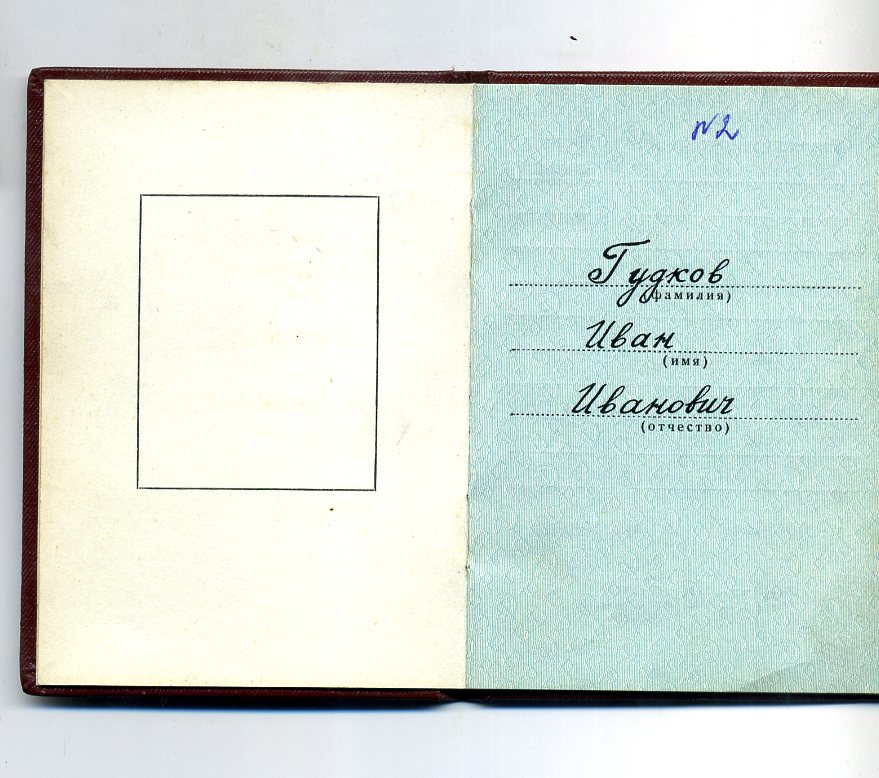 №2
Гудков
(фамилия)
Иван
(имя)
Иванович
(отчество)